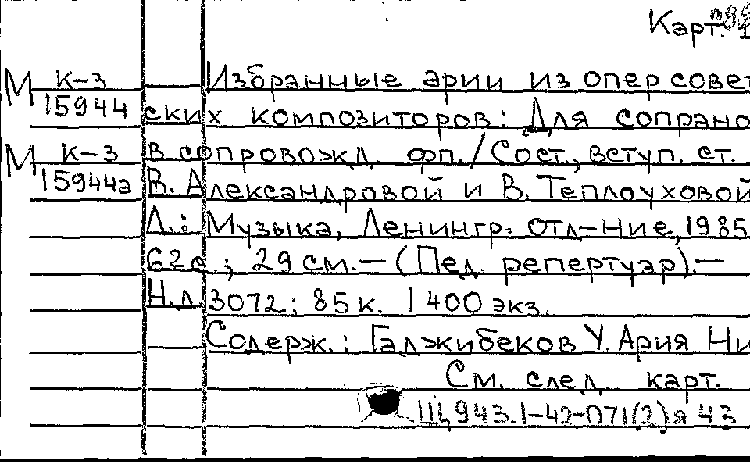 Карт. 1
М К-3 Избранные арии из опер совет
15944 ских композиторов: Для сопрано
М К-3 в сопровожд. фп./Сост., вступ. ст.
15944а В. Александровой и В. Теплоуховой
Л.: Музыка, Ленингр. отд-ние, 1985
62с.; 29 см.— (Пед. репертуар).—
Н.д. 3072: 85 к. 1400 экз.
Содерж.: Гаджибеков У. Ария Ни
См. след. карт.
Щ943.1-42-071(2)я 43